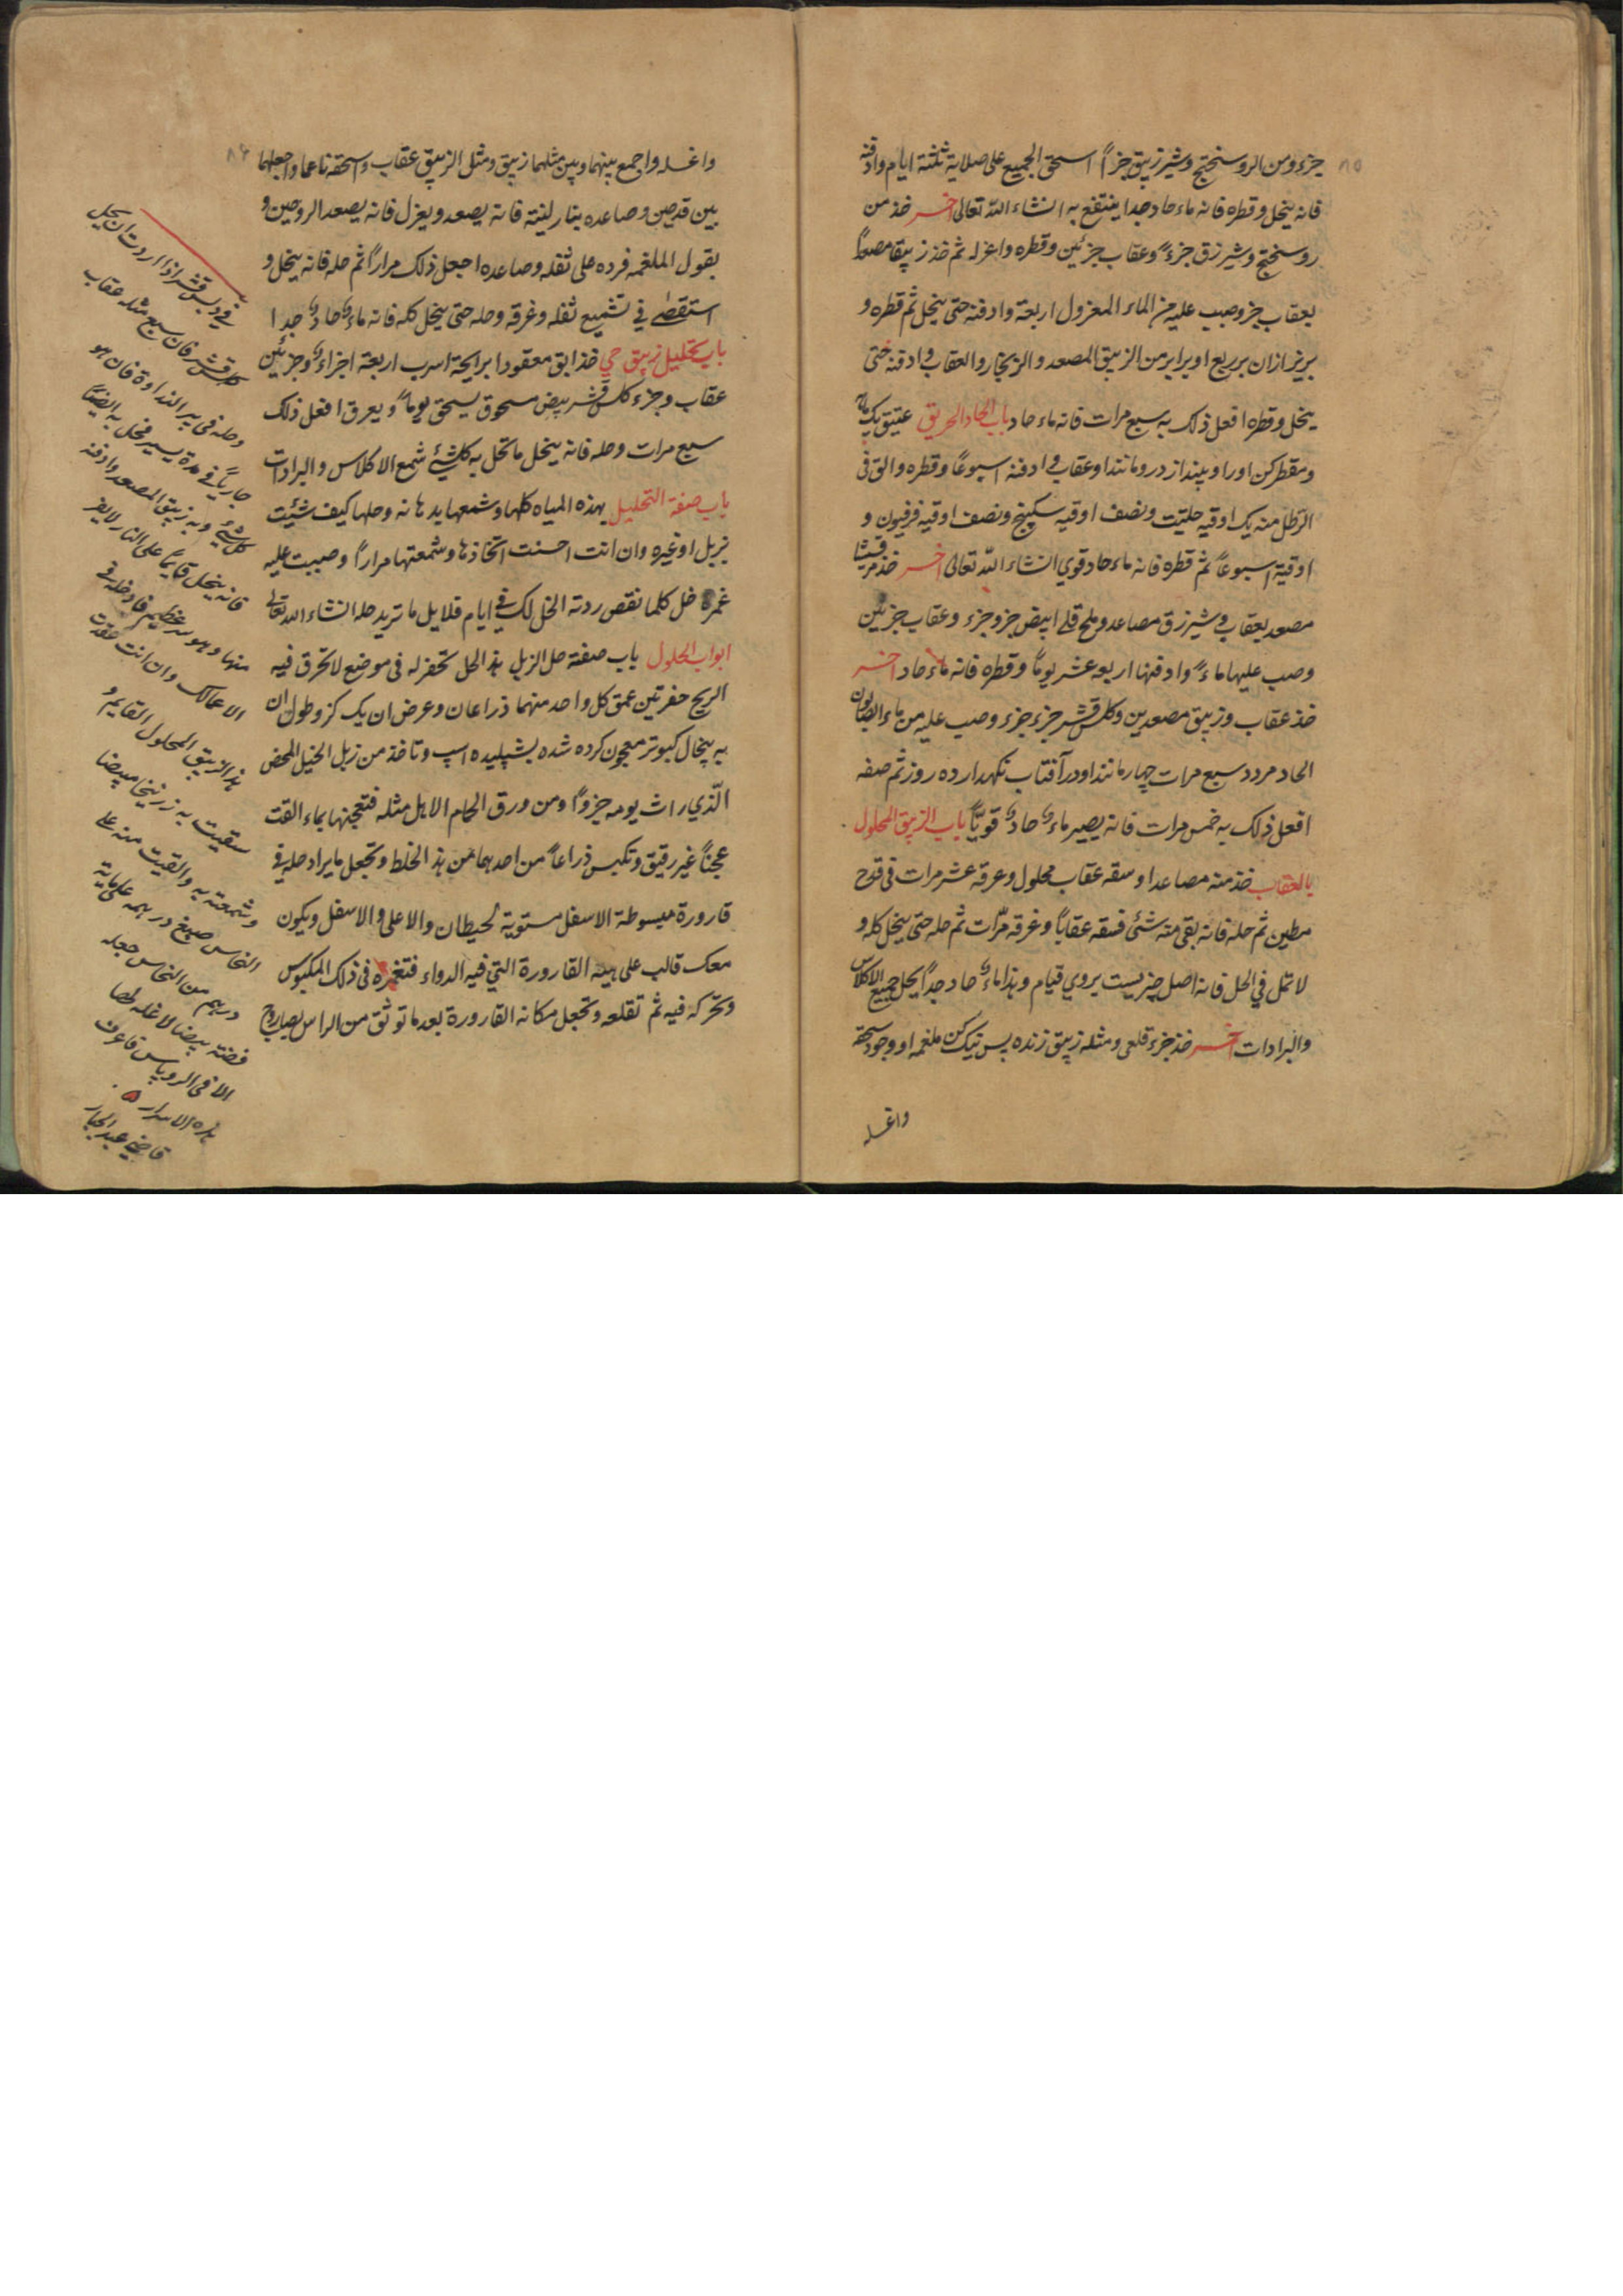 ٨٥
جزء ومن الروسختج وشیرزیبق جزأً اسحق الجمیع علی صلایة ثلثة ایام وادفنه
فانه ینحل وقطره فانه ماء حاد جدا ینتفع به انشاء الله تعالی اخر خذ من
روسختج وشیرزق جزءً وعقاب جزئین وقطره واعزله ثم خذ زیبقا مصعداً
بعقاب جزو صب علیه من الماء المعزول اربعة وادفنه حتی ینحل ثم قطره و
بریز ازان بر ربع او برابر من الزیبق المصعد والزنجار والعقاب وادفنه حتی
ینحل وقطره افعل ذلک به سبع مرات فانه ماء حاد باب الحاد الحریق عتیق یک
ومقطر کن اورا وبینداز درو مانند او عقاب وادفنه اسبوعاً وقطره والق فی
الرطل منه یک اوقیه حلتیت ونصف اوقیه سکبینج ونصف اوقیه فرفیون و
اوقیة اسبوعاً ثم قطره فانه ماء حاد قوی انشاء الله تعالی اخر خذ مرقشیثا
مصعد بعقاب وشیرزق مصاعد وملح قلی ابیض جزو جزء وعقاب جزئین
وصب علیها ماءً وادفنها اربعة عشر یوماً وقطره فانه ماء حاد اخر
خذ عقاب وزیبق مصعدین وکلس قشر جزء جزء وصب علیه من ماء الصابون
الحاد مردد سبع مرات چهار مانند او در آفتاب نکهدار ده روز ثم صفه
افعل ذلک به خمس مرات فانه یصیر ماء حاد قویاً باب الزیبق المحلول
بالعقاب خذ منه مصاعدا وسقه عقاب محلول وعرقه عشر مرات فی قدح
مطین ثم حله فانه بقی منه شئ فسقه عقاباً وغرقه مرّات ثم حله حتی ینحل کله و
لا تمل فی الحل فانه اصل چیزیست یروی قیام وهذا ماء حاد جداً یحل جمیع الاکلاس
والبرادات آخر خذ جزء قلعی ومثله زیبق زنده پس نیک کن ملغمه او وجود سحقه
واغسله
٨٦
واغسله واجمع بینهما وبین مثلهما زیبق ومثل الزیبق عقاب واسحقه ناعما واجعلهما
بین قدحین وصاعده بنار لینة فانه یصعد ویعزل فانه یصعد الروحین و
بقول الملغمه فرده علی ثفله وصاعده اجعل ذلک مراراً ثم حله فانه ینحل و
استقصی فی تشمیع ثفله وغرقه وحله حتی ینحل کله فانه ماء حاد جدا
باب تحلیل زیبق حی خذ ابق معقودا برایحة اسرب اربعة اجزاء وجزئین
عقاب وجزء کلس قشر بیض مسحوق یسحق یوماً ویعرق افعل ذلک
سبع مرات وحله فانه ینحل ما تحل به کلشئ شمع الاکلاس والبرادات
باب صفة التحلیل بهذه المیاه کلها وشمعها بدهانه وحلها کیف شئت
بزبل او غیره وان انت احسنت اتخاذها وشمعتها مراراً وصببت علیه
غمره خل کلما نقص ردته الخل لک فی ایام قلایل ما ترید حله انشاء الله تعالی
ابواب الحلول باب صفته حل الزبل هذا الحل تحفر له فی موضع لا تخرق فیه
الریح حفرتین عمق کل واحد منهما ذراعان وعرض ان یک کز وطول ان
به پیخال کبوتر معجون کرده شده بشپلیده اسپ وتاخذ من زبل الخیل المحض
الّذی راث یومه جزوًا ومن ورق الحمام الاهل مثله فتعجنها بماء القت
عجناً غیر رقیق وتکبس ذراعاً من احدهما من هذا الخلط وتجعل ما یراد حله فی
قارورة مبسوطة الاسفل مستویة لحیطان والاعلی والاسفل ویکون
معک قالب علی هیئه القارورة التی فیه الدواء فتغمره فی ذلک المکبوس
وتحرکه فیه ثم تقلعه وتجعل مکانه القارورة بعد ما توثق من الراس بصاروج
اذا اردت ان یحل
کلس قشر مثله عقاب
وحله فی بیر النداوة فان هو
جاریاً فی مدة یسیر فحل به ایضاً
کلشئ وبه زیبق المصعد وادفنه
فانه ینحل قایماً علی النار لا یفر
منها وهو سر عظیم فادخله فی
الاعمالک وان انت عقدت
هذا الزیبق المحلول القایم و
سقیت به زرنیخا مبیضا
وشمعته به والقیت منه علی
النحاس صبغ درهمه علی مایة
درهم من النحاس جعله
فضة بیضا لا غله لها
الا فی الروباس فاعرف
هذه الاسرار
قاضی عبدالجبار